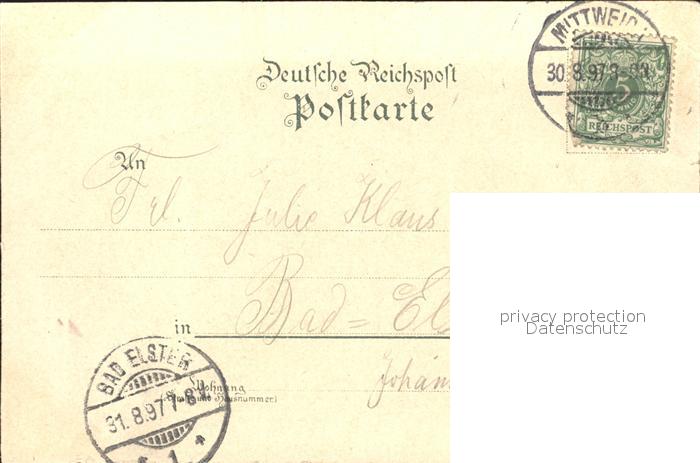 MITTWEID
30.8.97
5
REICHSPOST
Deutsche Reichspost
Postkarte
An
Frl. Julie Klaus
privacy protection
Datenschutz
in Bad-Els
BAD ELSTER
31.8.97 7-8
1
Johann
Wohnung
(Straße und Hausnummer)